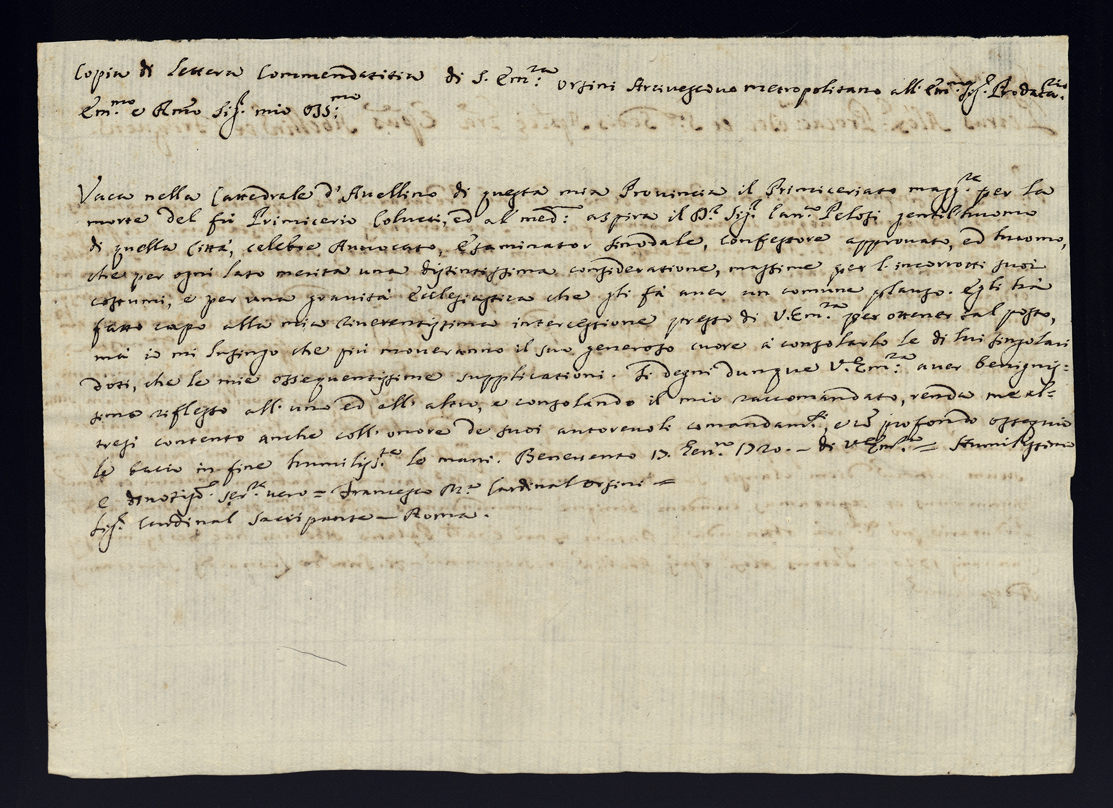 Copia di lettera Commendatitia di S. Em.za Orsini Arcivescovo metropolitano all' Em.mo Sig.r Prodata.rio
Em.mo e Rmo Sig.r mio Oss.mo
Vaca nella Cattedrale d'Avellino di questa mia Provincia il Primiceriato magg.re per la
morte del fù Primicerio Colucci, ed al med.: aspira il D.r Sig.r Can.co Pelosi gentilhuomo
di quella Città, celebre Avvocato, Esaminator sinodale, confessore approvato, ed huomo,
che per ogni lato merita una distintissima consideratione, massime per l'incorrotti suoi
costumi, e per una gravità Ecclesiastica che gli fà aver un comune plauso. Egli hà
fatto capo alla mia riverentissima intercessione presso di V. Em.za per ottener tal posto,
mà io mi lusingo che più moveranno il suo generoso cuore à consolarlo le di lui singolari
doti, che le mie ossequentissime supplicationi. Si degni dunque V. Em.za aver benignis:
simo riflesso all' uno ed all' altro, e consolando il mio raccomandato, renda me al-
tresì contento anche coll' onore de suoi autorevoli comandam.ti, e co profondo ossequio
le bacio in fine humiliss.te le mani. Benevento 13. Gen.ro 1720. - di V. Em.za = Humilissimo
e divotiss.o ser.re vero = Francesco M.a Cardinal Orsini =
Sig.r Cardinal Sacripante - Roma.